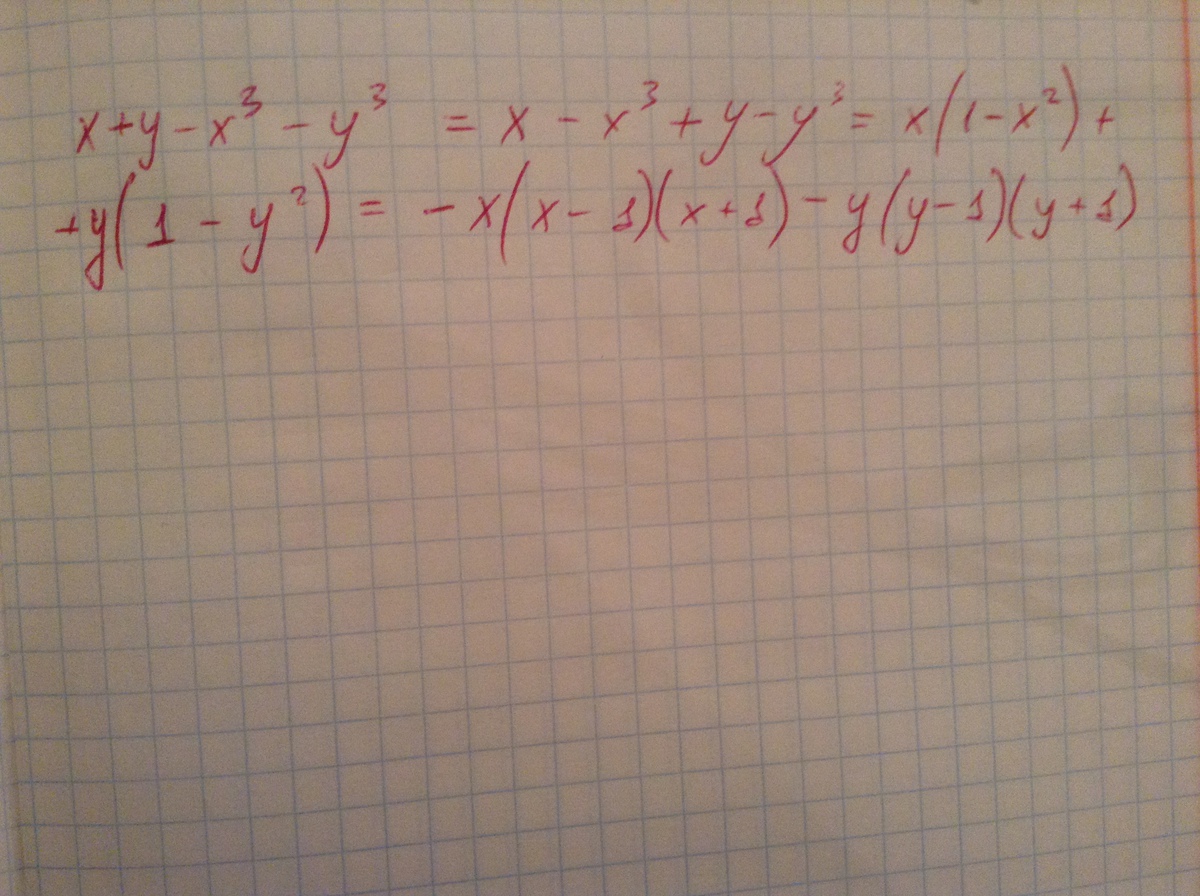 x+y-x³-y³ = x-x³+y-y³= x(1-x²)+
+y(1-y²)= -x(x-1)(x+1)-y(y-1)(y+1)